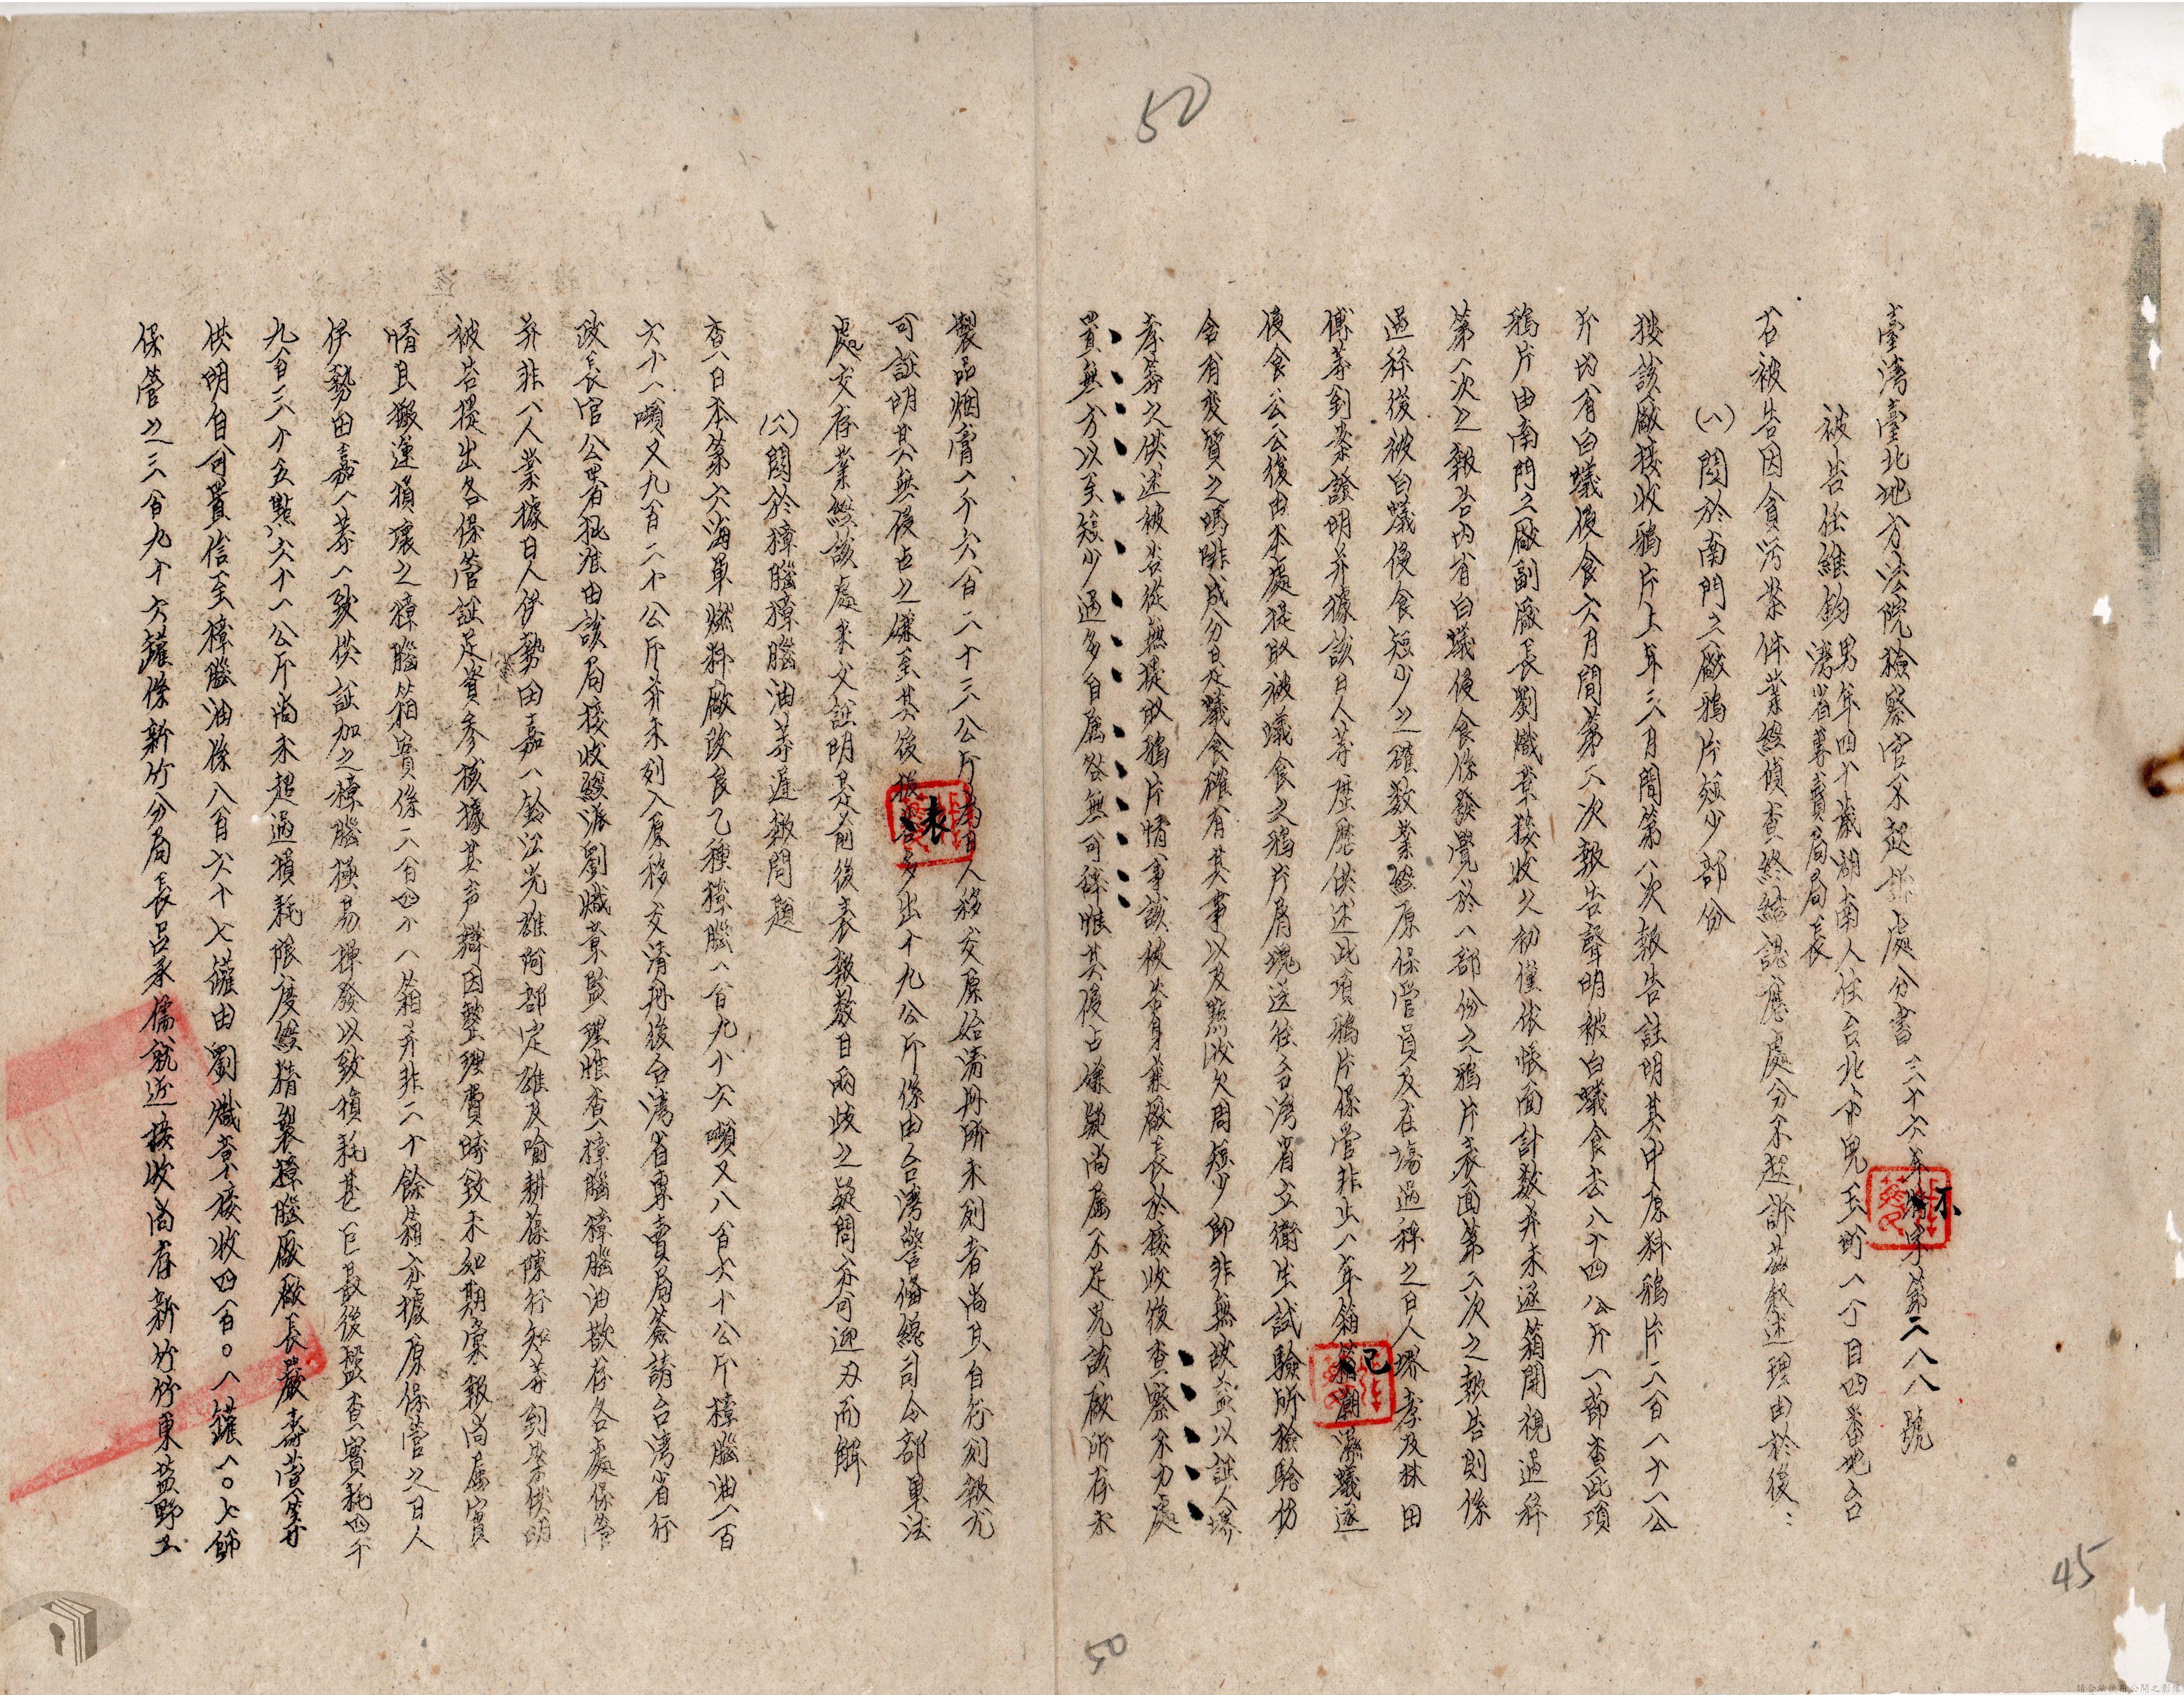 50
臺灣臺北地方法院檢察官不起訴處分書 三十六年 字第二八八號
被告任維鈞 男年四十歲湖南人住台北市兒玉町一丁目四番地台
灣省專賣局局長
右被告因貪污案件業經偵查終結認應處分不起訴茲敘述理由於後：
(一)關於南門工廠鴉片短少部份
按該廠接收鴉片上年三月間第一次報告註明其中原料鴉片二百一十一公
斤內有白蟻侵食六月間第二次報告聲明被白蟻食去八十四公斤一節查此項
鴉片由南門工廠副廠長劉熾章接收之初僅依帳面計數并未逐箱開視過秤
第一次之報告內有白蟻侵食係發覺於一部份之鴉片表面第二次之報告則係
過秤後被白蟻侵食短少之確數業經原保管員及在場過秤之日人堺孝及林田
傳等到案證明并據該日人等歷歷供述此項鴉片保管非止一年箱 已潮濕蟻逐
侵食云云復由本處提取被蟻食之鴉片屑塊送往台灣省立衛生試驗所檢驗仍
含有变質之嗎啡成分是蟻食確有其事以及點收欠周短少卽非無故益以証人堺
孝等之供述被告從無提取鴉片情事該被告身兼廠長於接收後查察不力處
置無方以至短少過多自屬咎無可辭惟其侵占嫌疑尚屬不足見該廠所存未
製品烟膏一千六百二十三公斤 日人移交原始清冊所未列者尚且自行列報尤
可証明其無侵占之嫌至其後 表多出十九公斤係由台灣警備總司令部軍法
處交存業經該處來文証明是前後表報數目兩歧之疑問亦可迎刃而解
(二)關於樟腦樟腦油等遲報問題
查日本第六海軍燃料廠改良乙種樟腦一百九十六噸又八百六十公斤樟腦油一百
六十一噸又九百二十公斤并未列入原移交清冊後台灣省專賣局簽請台灣省行
政長官公署批准由該局接收經派劉熾章監理惟查樟腦樟腦油散存各處保管
并非一人業據日人伊勢田嘉一鈴江光雄阿部定雄及喻耕葆陳行知等到案供明
被告提出各保管証足資參核據其声辯因整理費時致未如期彙報尚屬實
情且搬運損壞之樟腦箱實係二百四十一箱并非二十餘箱亦據原保管之日人
伊勢田嘉一等一致供証加之樟腦極易揮發以致損耗甚巨最後盤查實耗四千
九百三十五點六十一公斤尚未超過損耗限度經精製樟腦廠廠長嚴壽萱等
供明自可置信至樟腦油係八百六十七罐由劉熾章接收四百〇一罐一〇七節
保管之三百九十六罐係新竹分局長呂承儒就近接收尚存新竹竹東藍野工
45
50